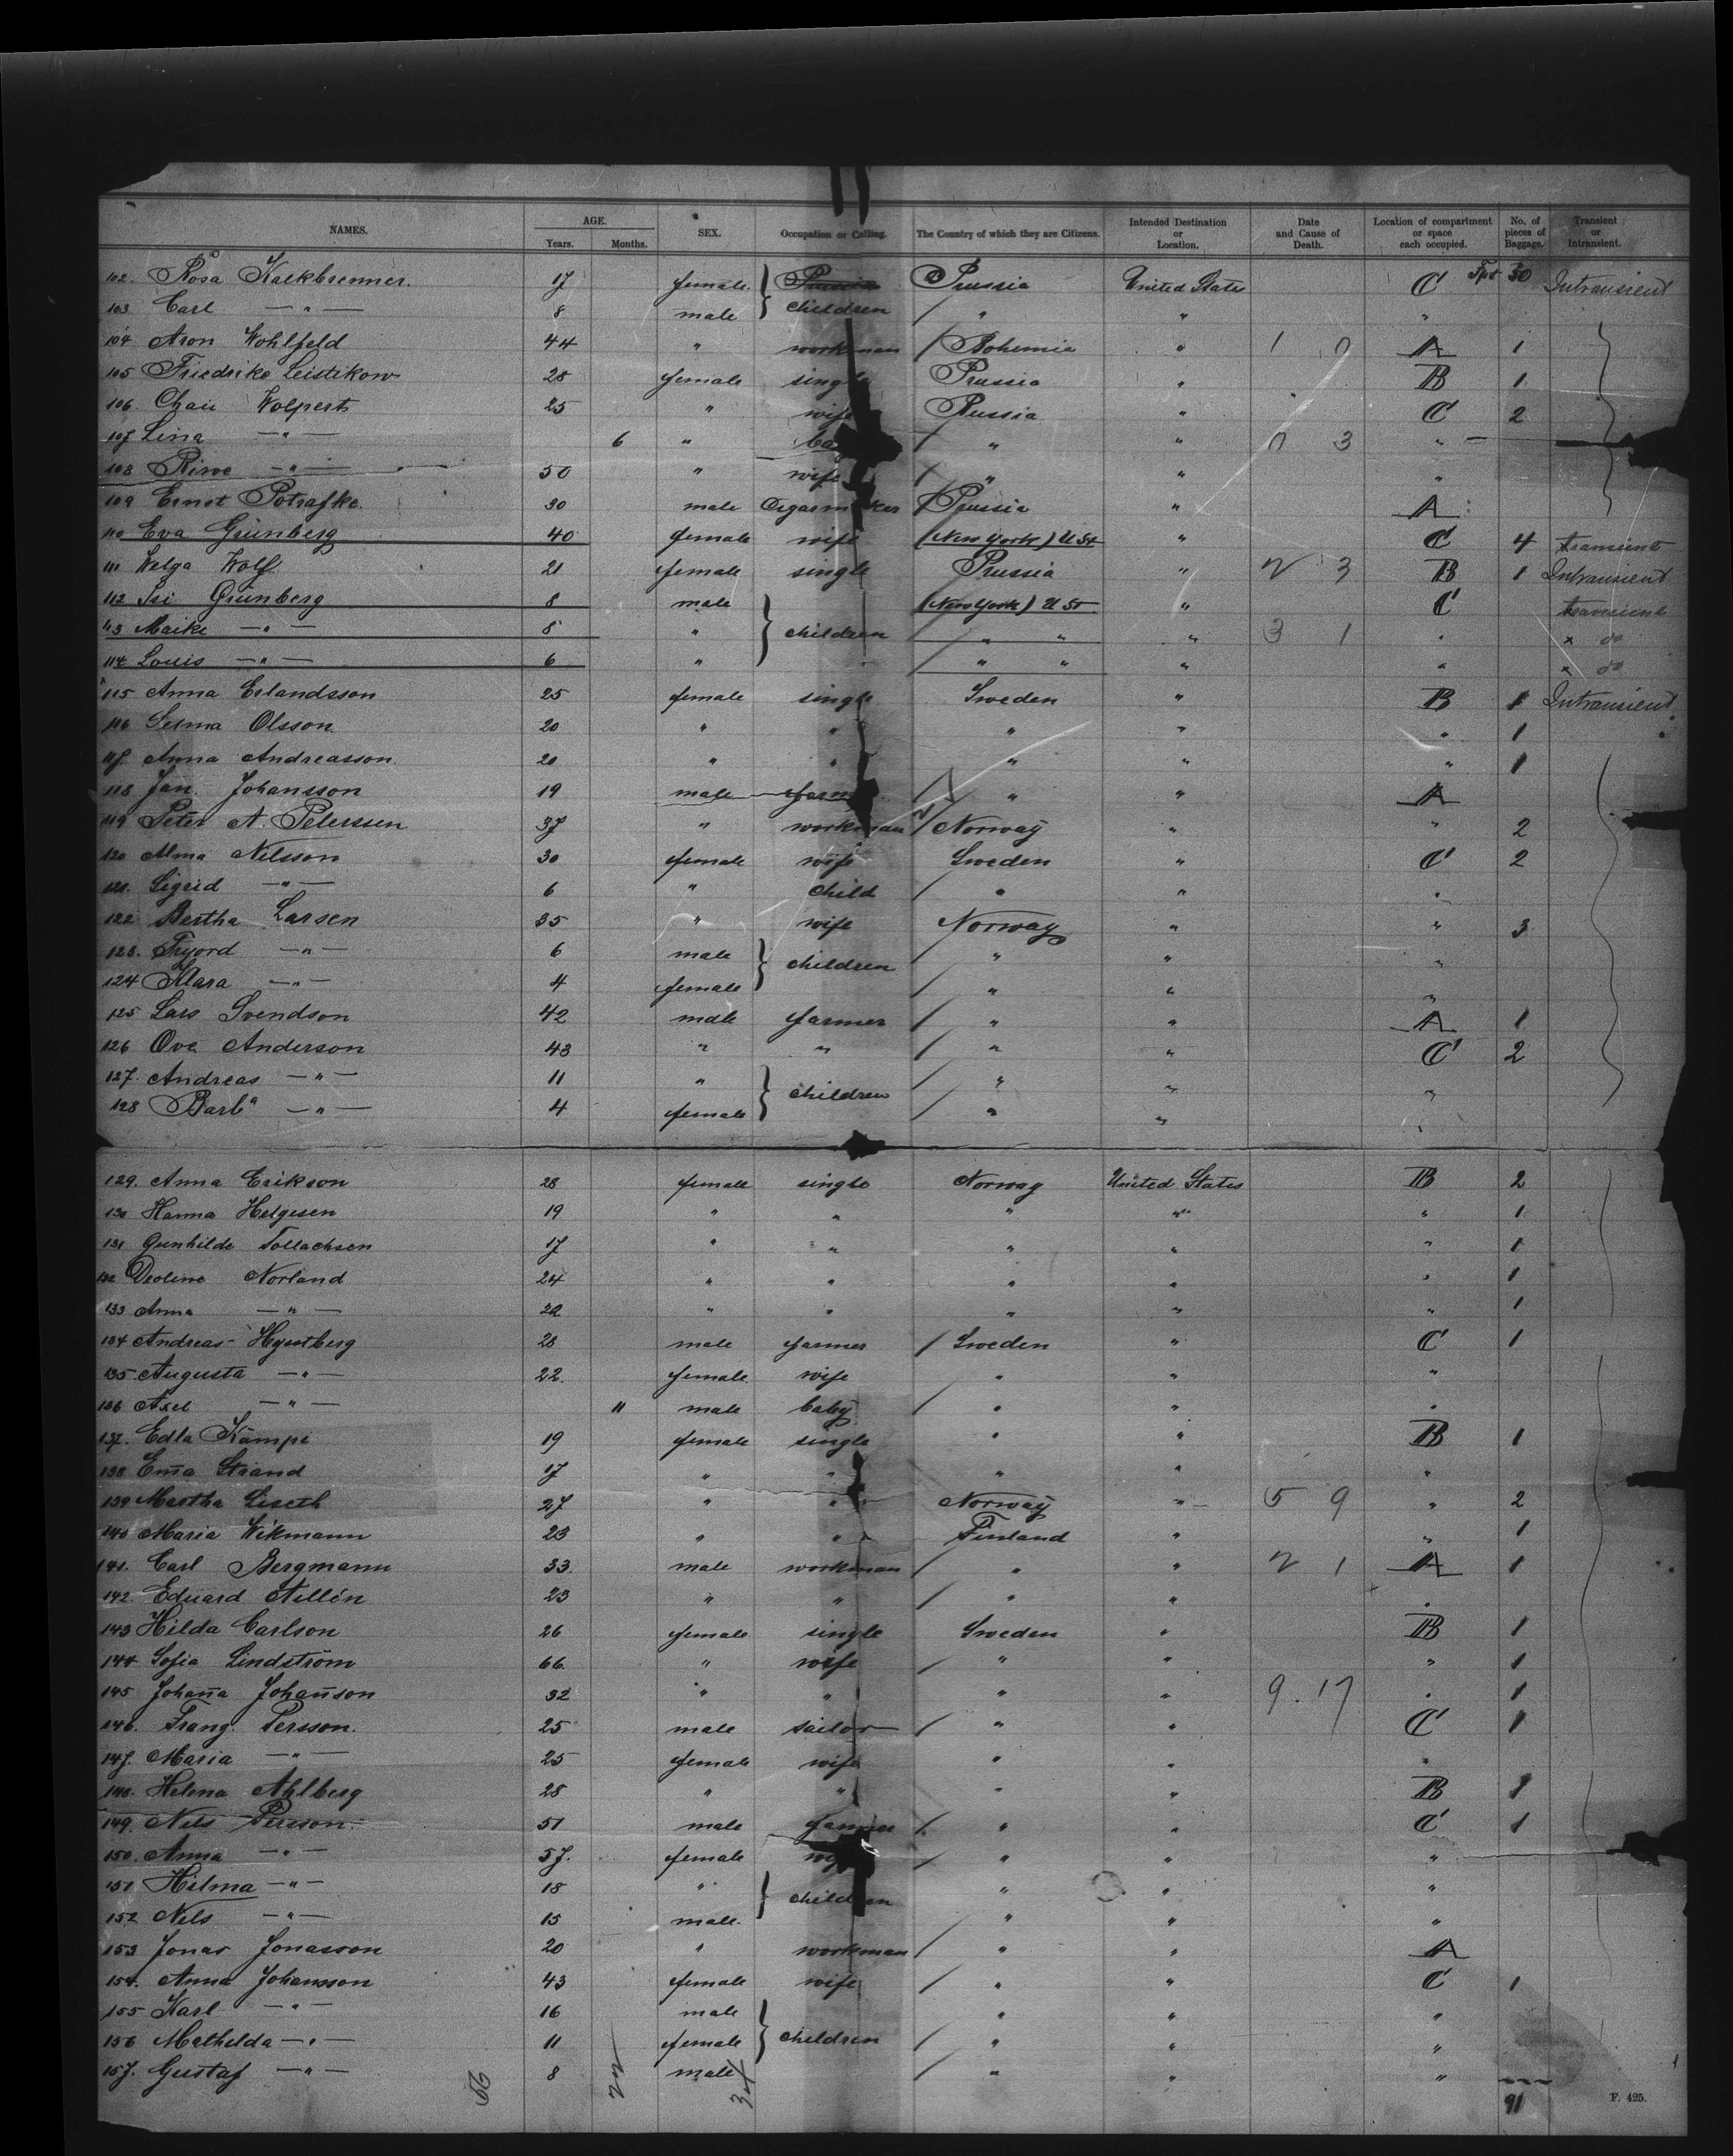 NAMES. AGE. Years. Months. SEX. Occupation or Calling. The Country of which they are Citizens. Intended Destination or Location. Date and Cause of Death. Location of compartment or space each occupied. No. of pieces of Baggage. Transient or Intransient.
102. Rosa Kalkbrenner. 17 female Prussia United States C Fpt 30 Intransient
103 Carl —"— 8 male } children " " "
104 Aron Wohlfeld 44 " workman Bohemia " 1 0 A 1
105 Friedrike Leistikow 28 female single Prussia " B 1
106 Chaie Wolpert 25 " wife Russia " C 2
107 Lina —"— 6 " ba " " 0 3 " —
108 Riwe —"— 50 " wife " " "
109 Ernst Potrafke. 30 male Cigarmaker Prussia " A
110 Eva Grünberg 40 female wife (New York) U St " C 4 transient
111 Welga Wolf 21 female single Prussia " 2 3 B 1 Intransient
112 Isi Grünberg 8 male (New York) U St " C transient
113 Maike —"— 8 " } children " " " 3 1 " do
114 Louis —"— 6 " " " " " do
115 Anna Erlandsson 25 female single Sweden " B 1 Intransient
116 Selma Olsson. 20 " " " " " 1
117 Anna Andreasson. 20 " " " " " 1
118 Jan. Johansson 19 male farm " " A
119 Peter A. Peterssen 37 " workman Norway " " 2
120 Alma Nilsson 30 female wife Sweden " C 2
121. Sigrid —"— 6 " child " " "
122 Bertha Larsen 35 " wife Norway " " 3
123. Tryord —"— 6 male } children " " "
124 Klara —"— 4 female " " "
125 Lars Svendson 42 male farmer " " A 1
126 Ove Anderson 43 " " " " C 2
127. Andreas —"— 11 " } children " " "
128 Barb" —"— 4 female " " "
129. Anna Erikson 28 female single Norway United States B 2
130 Hanna Helgesen 19 " " " " " 1
131 Gunhilde Tollachsen 17 " " " " " 1
132 Deoline Norland 24 " " " " " 1
133 Anna —"— 22 " " " " " 1
134 Andreas Hgustberg 28 male farmer Sweden " C 1
135 Augusta —"— 22. female wife " " "
136 Axel —"— 11 male baby " " "
137. Edla Kämpe 19 female single " " B 1
138 Em̄a Strand 17 " " " " "
139 Martha Liseth 27 " " Norway " 5 9 " 2
140 Maria Wikmann 23 " " Finland " " 1
141. Carl Bergmann 33. male workman " " 2 1 A 1
142. Eduard Nillén 23 " " " " "
143 Hilda Carlson 26 female single Sweden " B 1
144 Sofia Lindström 66. " wife " " " 1
145 Johan̄a Johan̄son 32 " " " " 9. 17 " 1
146. Frang. Persson. 25 male sailor " " C 1
147. Maria —"— 25 female wife " " "
148. Helena Ahlberg 28 " " " " B 1
149. Nils Persson. 51 male farmer " " C 1
150. Anna —"— 57. female wife " " "
151 Hilma —"— 18 " } children " " "
152 Nils —"— 15 male. " " "
153 Jonas Jonasson 20 " workman " " A
154. Anna Johansson 43 female wife " " C 1
155 Karl —"— 16 male } children " " "
156 Mathilda —"— 11 female " " "
157. Gustaf —"— 8 male " " "
56 22 34 91
F. 425.